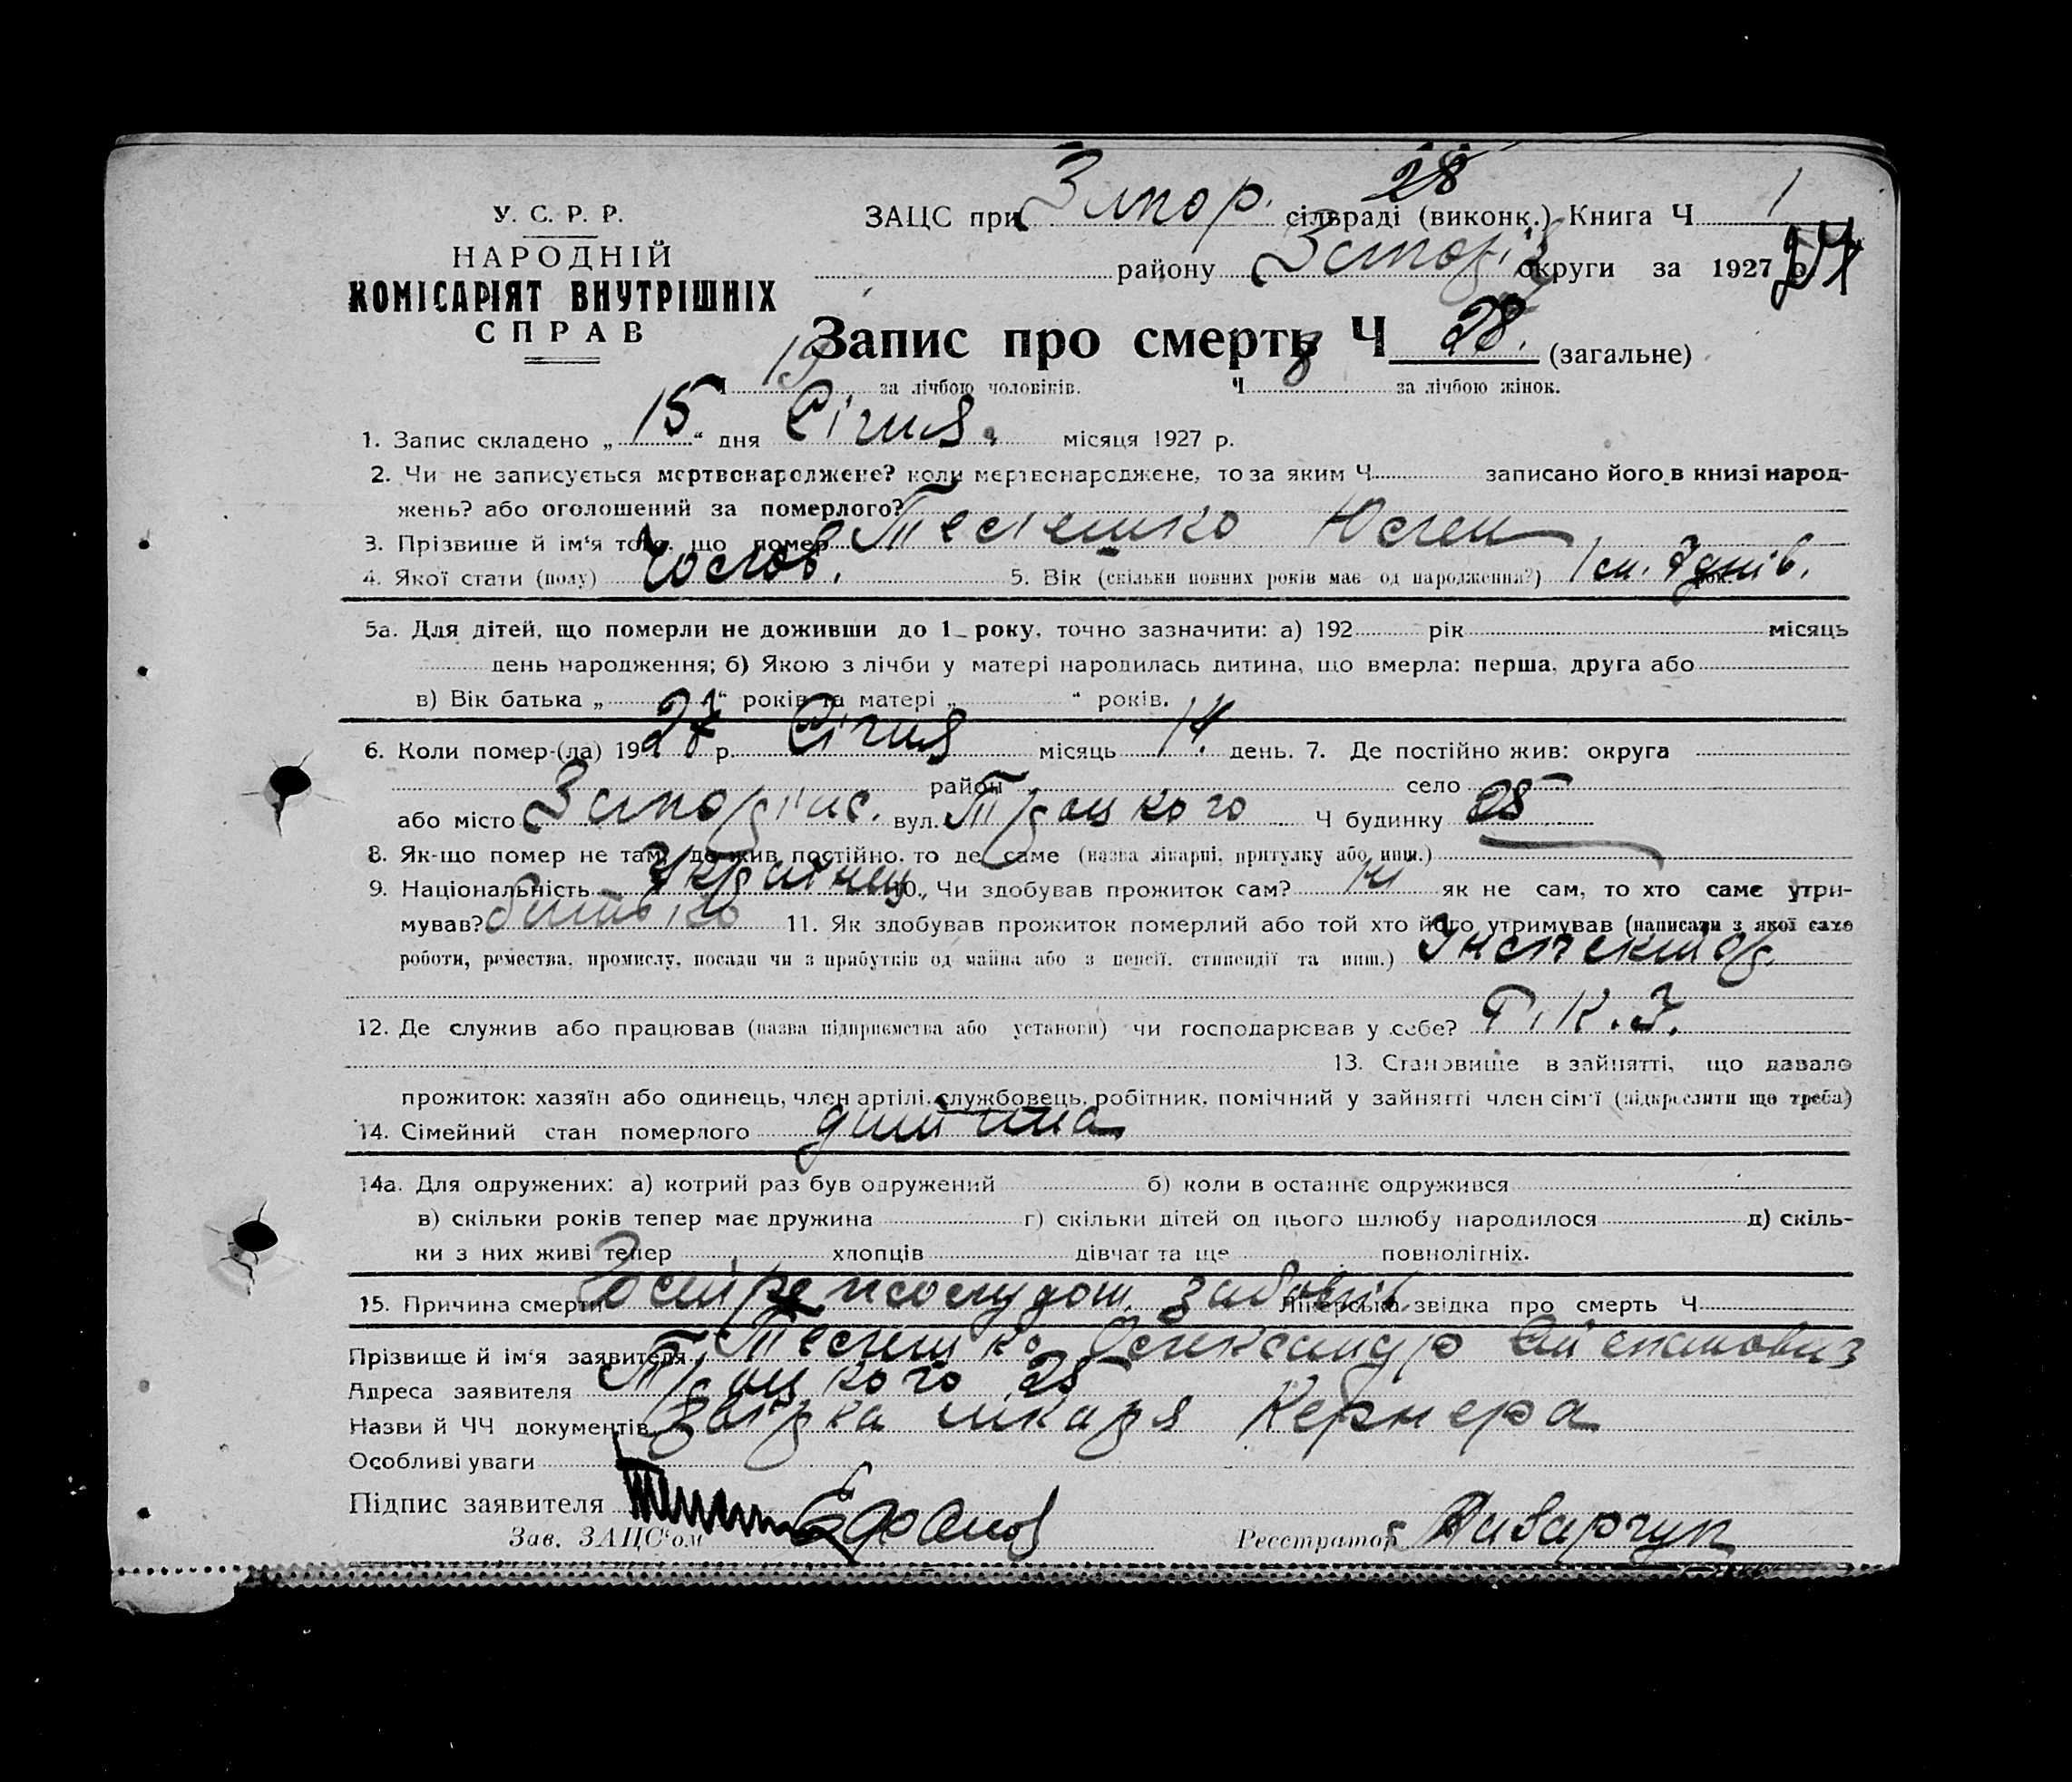 У. С. Р. Р.
НАРОДНІЙ
КОМІСАРІЯТ ВНУТРІШНІХ
СПРАВ
28
ЗАЦС при Запор. сільраді (виконк.) Книга Ч 1
району Запоріз округи за 1927 р.
24
Запис про смерть Ч 28. (загальне)
Ч 19 за лічбою чоловіків. Ч за лічбою жінок.
1. Запис складено „ 15 “ дня Січня. місяця 1927 р.
2. Чи не записується мертвонароджене? коли мертвонароджене, то за яким Ч записано його в книзі народ-
жень? або оголошений за померлого?
3. Прізвище й ім‘я того, що помер Телешко Юлен
4. Якої стати (полу) Чолов. 5. Вік (скільки повних років має од народження?) 1 м. 7 днів.
5а. Для дітей, що померли не доживши до 1 року, точно зазначити: а) 192 рік місяць
день народження; б) Якою з лічби у матері народилась дитина, що вмерла: перша, друга або
в) Вік батька „ “ років та матері „ “ років.
6. Коли помер-(ла) 1927 р. Січня місяць 14. день. 7. Де постійно жив: округа
район село
або місто Запоріжж. вул. Троцького Ч будинку 25
8. Як-що помер не там, де жив постійно, то де саме (назва лікарні, притулку або инш.)
9. Національність Українець 10. Чи здобував прожиток сам? ні як не сам, то хто саме утри-
мував? батько 11. Як здобував прожиток померлий або той хто його утримував (написати з якої саме
роботи, ремества, промислу, посади чи з прибутків од майна або з пенсії, стипендії та инш.) Інспектор
12. Де служив або працював (назва підприємства або установи) чи господарював у себе? Т. К. З.
13. Становище в зайнятті, що давало
прожиток: хазяїн або одинець, член артілі, службовець, робітник, помічний у зайнятті член сім‘ї (підкреслити що треба)
14. Сімейний стан померлого дитина
14а. Для одружених: а) котрий раз був одружений б) коли в останнє одружився
в) скільки років тепер має дружина г) скільки дітей од цього шлюбу народилося д) скіль-
ки з них живі тепер хлопців дівчат та ще повнолітніх.
15. Причина смерти Гостре жолудош. забол. Лікарська звідка про смерть Ч
Прізвище й ім‘я заявителя Телешко Олександр
Адреса заявителя Троцького 25
Назви й ЧЧ документів звідка лікаря Кернера
Особливі уваги
Підпис заявителя
Зав. ЗАЦС‘ом Реєстратор